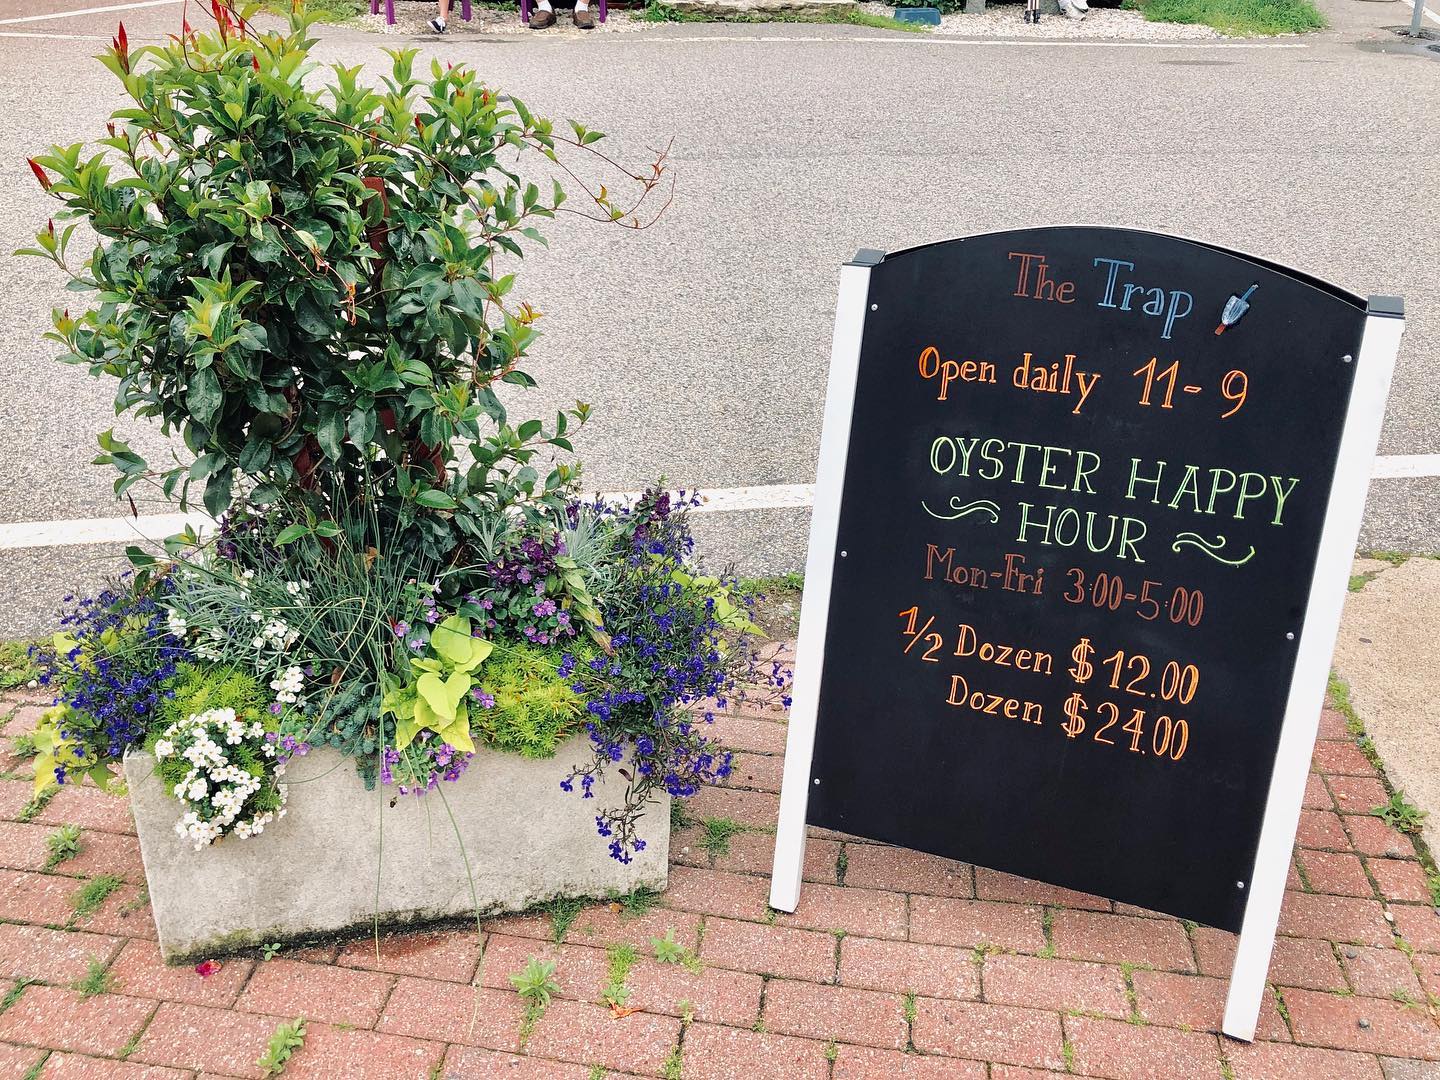 The Trap
Open daily 11-9
OYSTER HAPPY
HOUR
Mon-Fri 3:00-5:00
1/2 Dozen $12.00
Dozen $24.00